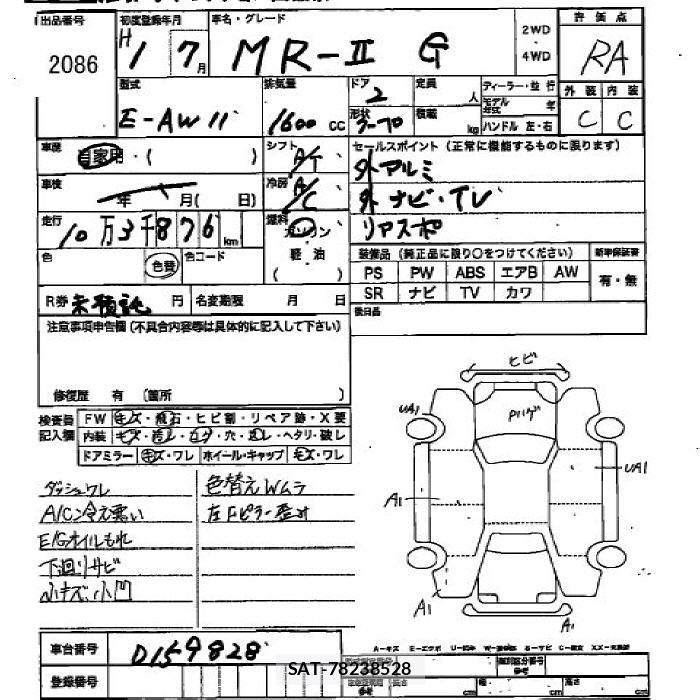 出品番号 初度登録年月 車名・グレード 2WD・4WD 評価点
2086 H 1 7月 MR-II G RA
型式 排気量 ドア 定員 ディーラー・並行 外装 内装
E-AW11 1600cc 2 人 モデル年式 年 C C
形状 積載 kg ハンドル 左・右
車歴 自家用・( ) シフト A/T セールスポイント (正常に機能するものに限ります)
外アルミ
車検 年 月( 日) 冷房 A/C 外ナビ・TV
走行 10万3千876km 燃料 ガソリン リアスポ
色 色替 色コード 軽・油 装備品(純正品に限り○をつけてください) 新車保証書
( ) PS PW ABS エアB AW 有・無
R券 未積託 円 名変期限 月 日 SR ナビ TV カワ
注意事項申告欄(不具合内容等は具体的に記入して下さい) 後日品
修復歴 有 (箇所 )
検査員記入欄 FW キズ・飛石・ヒビ割・リペア跡・X要
内装 キズ・汚レ・コゲ・穴・スレ・ヘタリ・破レ
ドアミラー キズ・ワレ ホイール・キャップ キズ・ワレ
ヒビ
Pハゲ
UA1
UA1
A1
A1
A1
ダッシュワレ 色替えWムラ
A/C冷え悪い 左Fピラー歪み
E/Gオイルもれ
下廻りサビ
小キズ、小凹
車台番号 D159828
登録番号
SAT-78238528